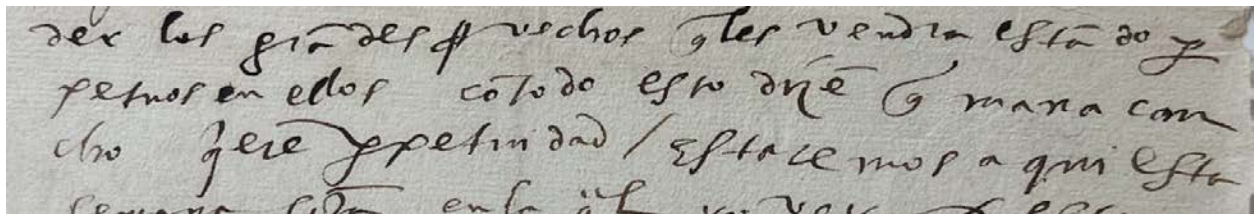 der los grādes ꝓvechos q̄ les vendra estādo ꝑ
petuos en ellos cō todo esto dizē q̄ mana can
cho q̄erē ꝑpetuidad / Estaremos aqui esta
semana en la